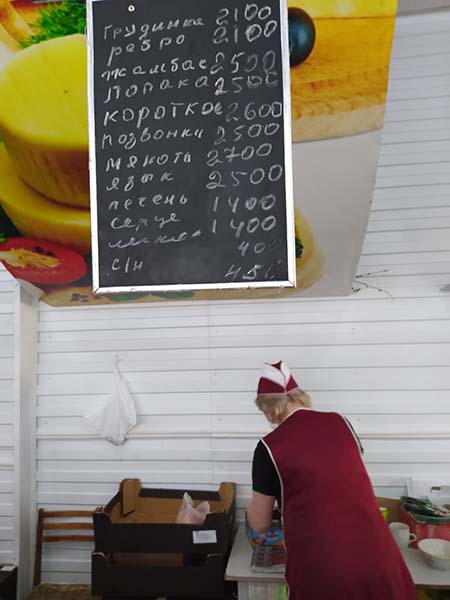 грудинка 2100
ребро 2100
жамбас 2500
лопака 2500
короткое 2600
позвонки 2500
мякоть 2700
язык 2500
печень 1400
серце 1400
400
с/н 45